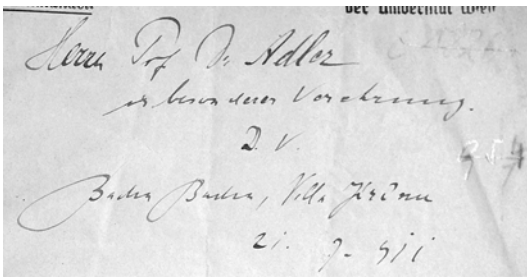 der Universität Wien
Herrn Prof Dr Adler
in besonderer Verehrung.
D. V.
Baden Baden, Villa
21. 9. 911